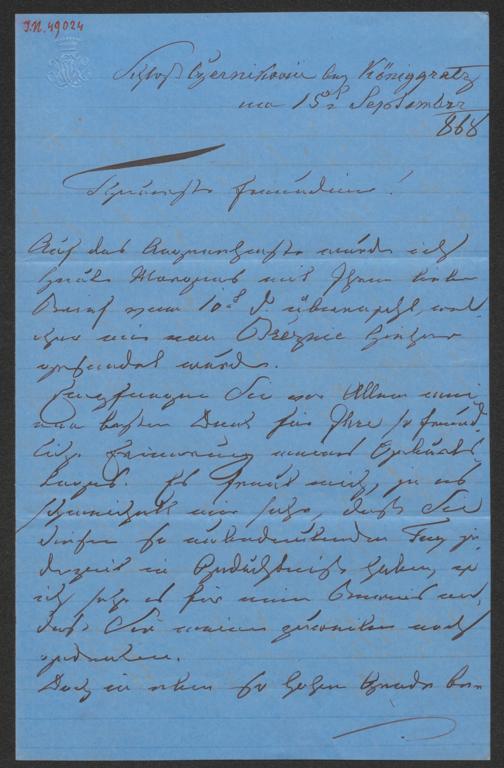 J.N. 49024
Schloß Czernikovic bey Königgratz
am 15t September
868
Theuerste Freundin!
Auf das Angenehmste wurde ich
heute Morgens mit Ihrem lieben
Brief vom 10t d. überrascht, wel-
cher mir von Březnic hieher
gesendet wurde.
Empfangen Sie vor Allem mei-
nen besten Dank für Ihre so freund-
liche Erinnerung meines Geburts-
tages. Es freut mich, ja es
schmeichelt mir sehr, daß Sie
diesen so unbedeutenden Tag
in Gedächtniß haben,
ich sehe es für einen Beweis an,
daß Sie meiner zuweilen noch
gedenken.
Doch in eben so hohem Grade